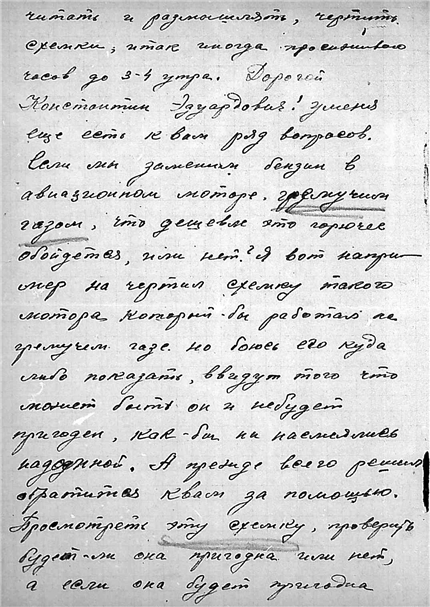 читать и размышлять, чертить
схемки, итак иногда просиживаю
часов до 3-4 утра. Дорогой
Константин Эдуардович! уменя
еще есть к вам ряд вопросов.
Если мы заменим бензин в
авиационном моторе, гремучим
газом, что дешевле это горючее
обойдется, или нет? Я вот напри
мер на чертил схемку такого
мотора который-бы работал на
гремучем газе но боюсь его куда
либо показать, ввидут того что
может быть он и небудет
пригоден, как-бы ни насмеялись
надомной. А прежде всего решил
обратится квам за помощью.
Просмотреть эту схемку, проверить
будет-ли она пригодна или нет,
а если она будет пригодна